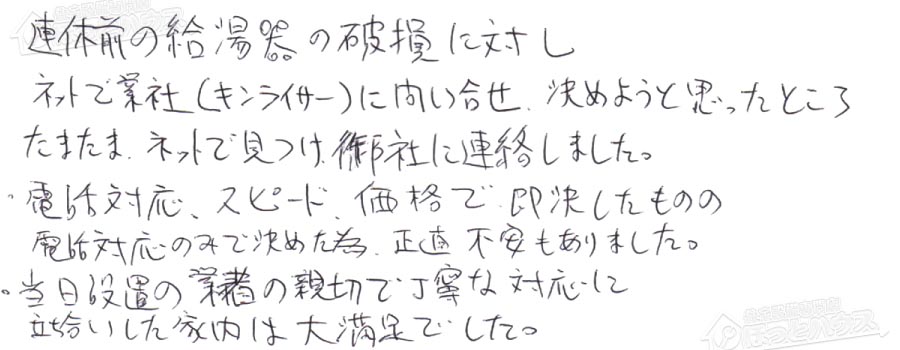 連休前の給湯器の破損に対し
ネットで業社(キンライサー)に向い合せ、決めようと思ったところ
たまたま、ネットで見つけ、御社に連絡しました。
・電話対応、スピード、価格で即決したものの
電話対応のみで決めた為、正直不安もありました。
・当日設置の業者の親切で丁寧な対応に
立合いした家内は大満足でした。
ほっとハウス